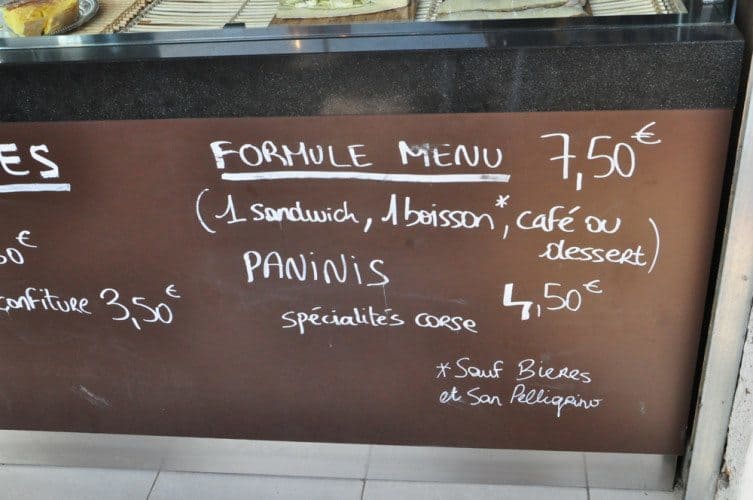 ES
FORMULE MENU 7,50€
(1 sandwich, 1 boisson*, café ou
dessert)
PANINIS
spécialités corse 4,50€
*Sauf Bieres
et San Pelligrino
50€
confiture 3,50€